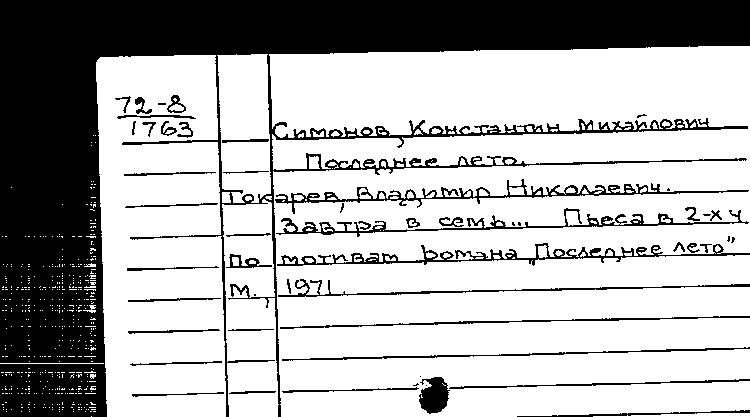 72-8
1763
Симонов, Константин Михайлович
Последнее лето.
Токарев, Владимир Николаевич.
Завтра в семь... Пьеса в 2-х ч
по мотивам романа „Последнее лето"
М., 1971.